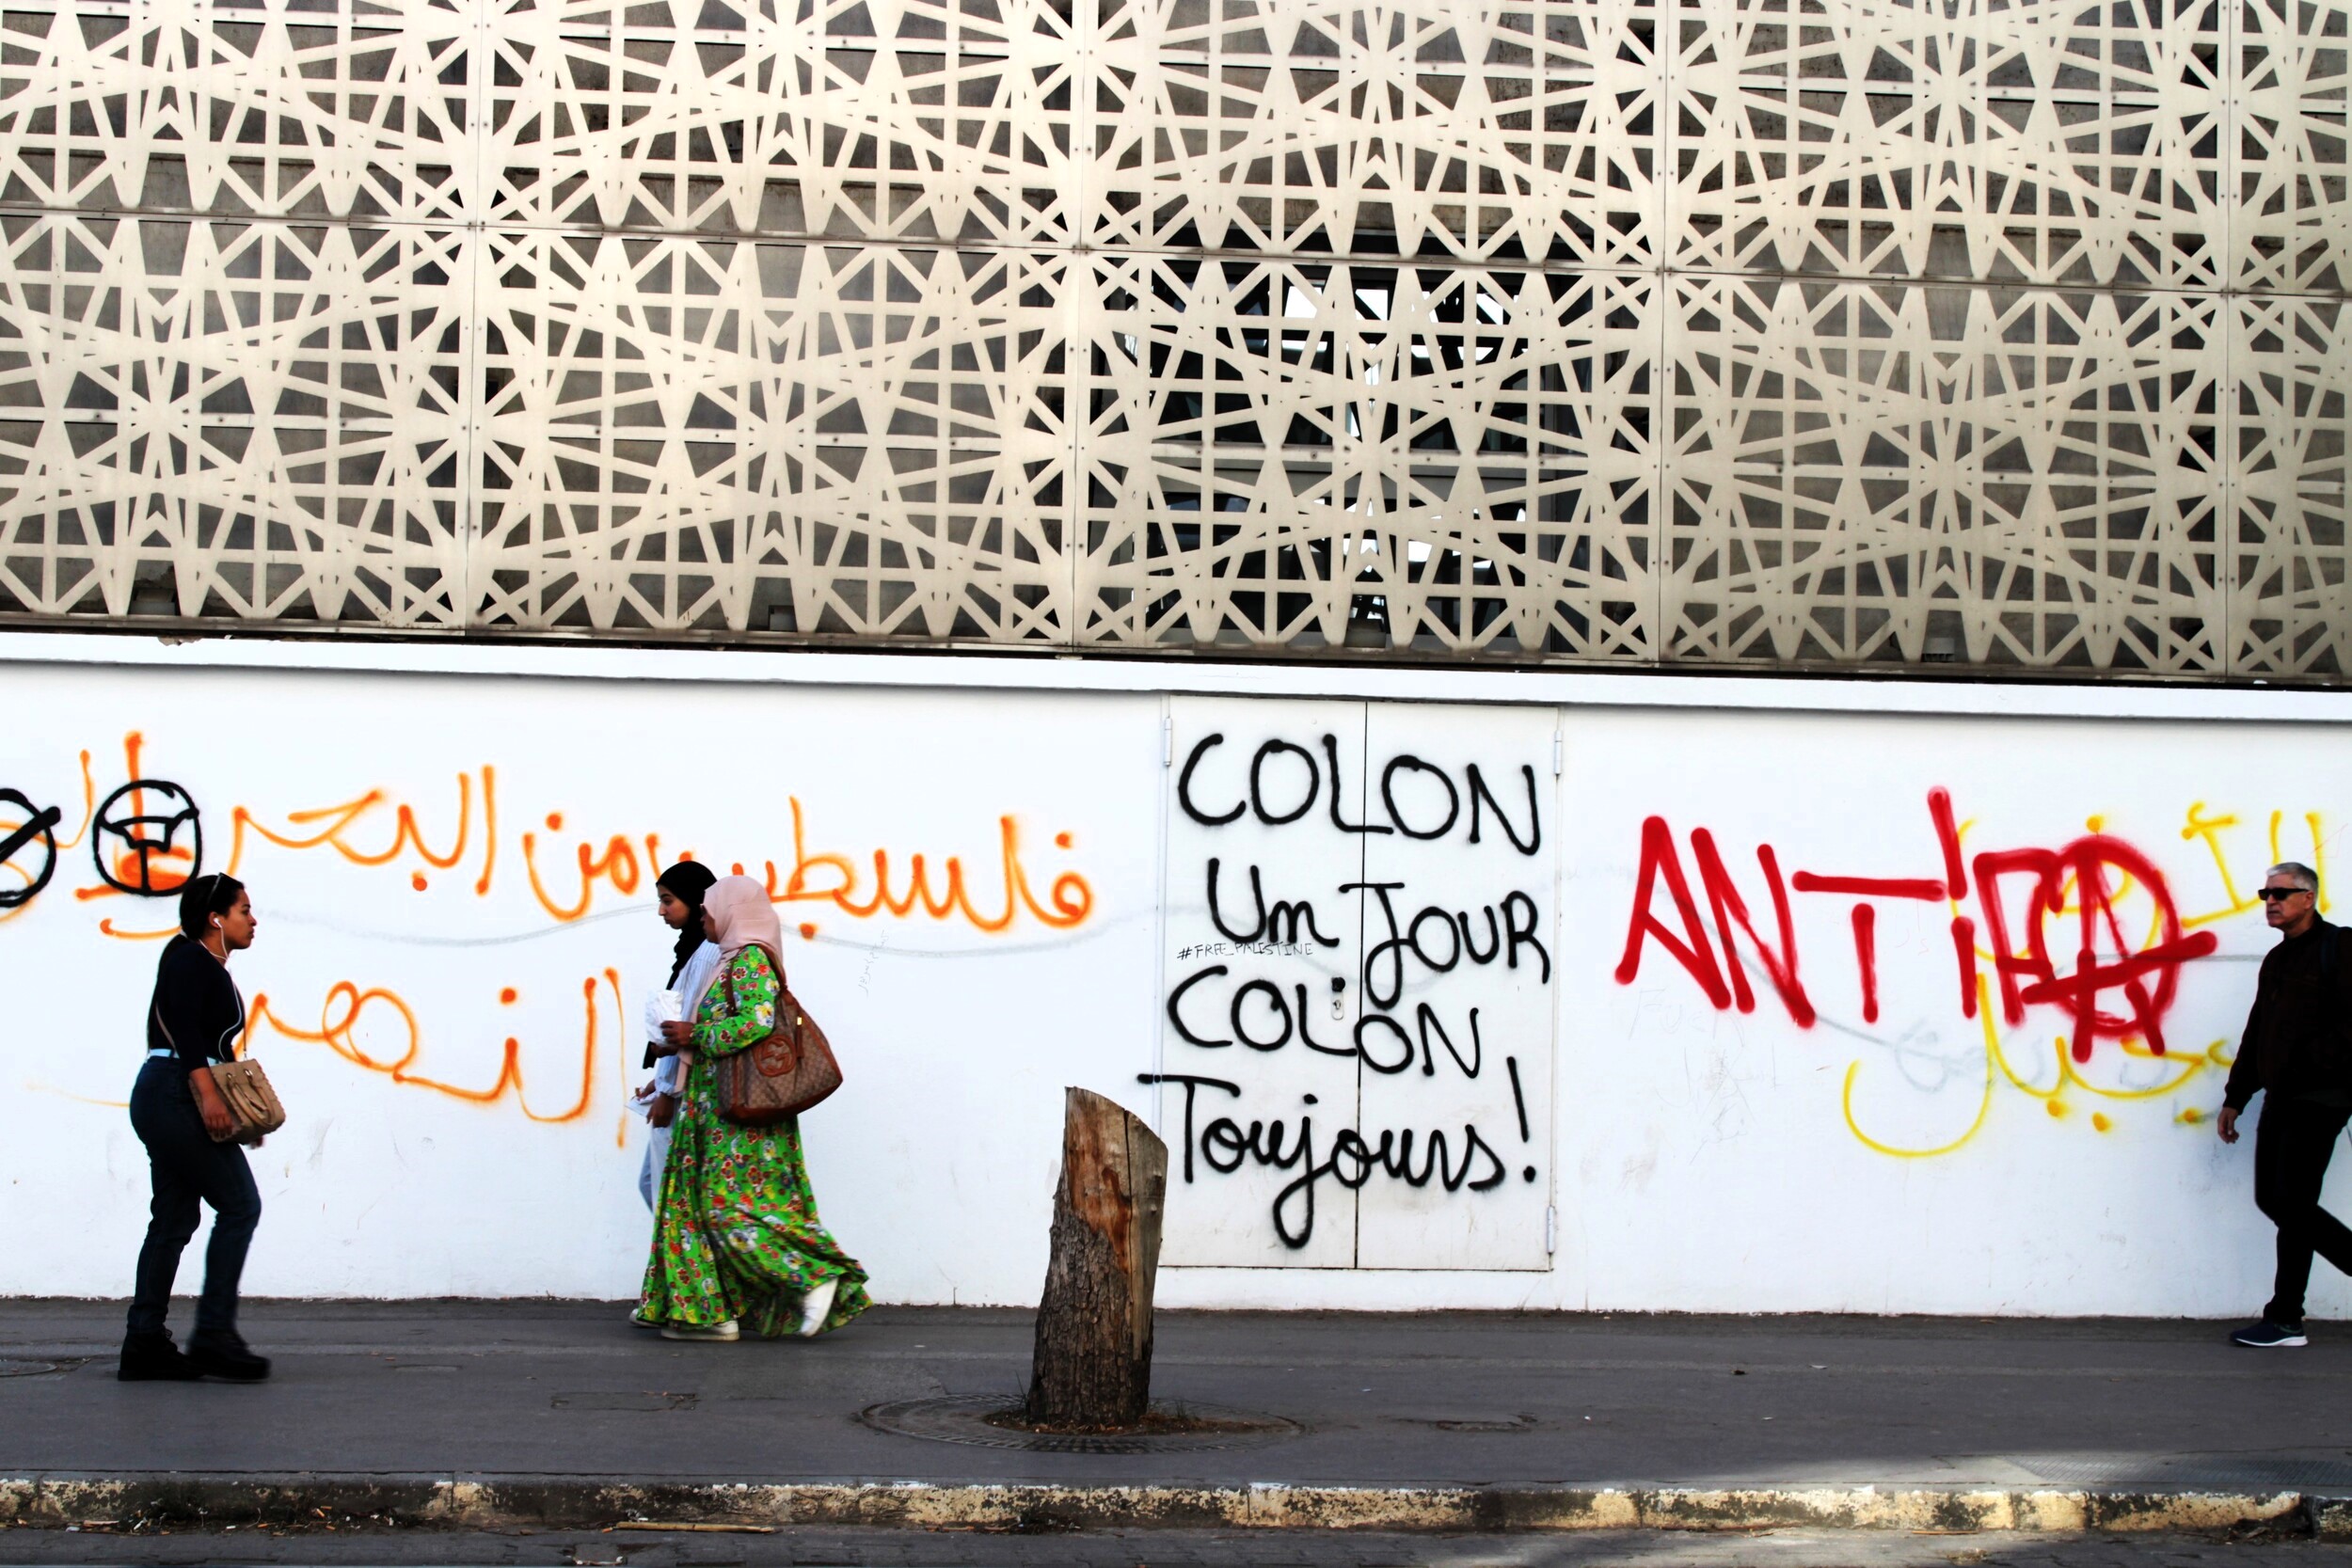 فلسطين من البحر إلى
النهر
COLON
Un JOUR
#FREE_PALESTINE
COLON
Toujours!
ANTiFA